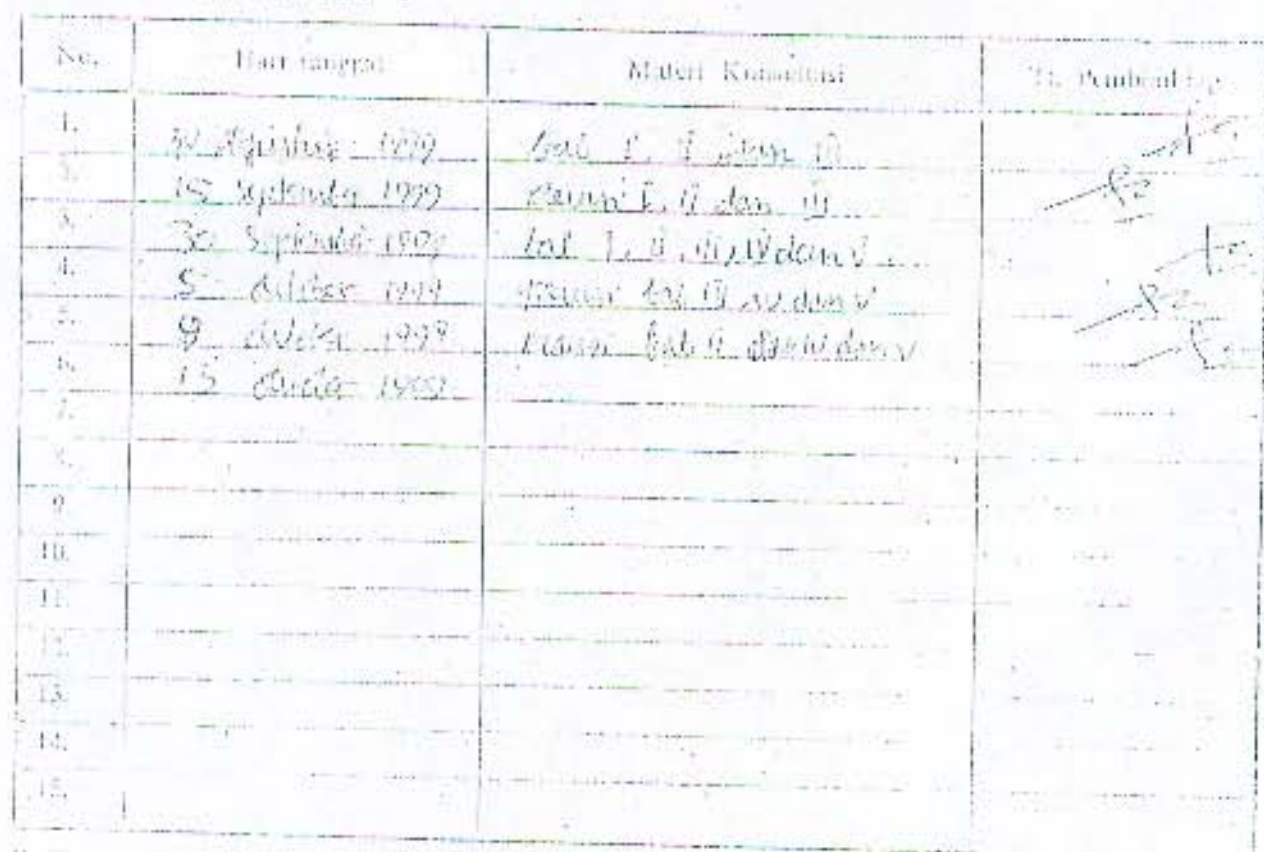 No. Hari tanggal Materi Konsultasi Tt. Pembimbing
1. Agustus 1999 bab I, II dan III
2. 15 September 1999 Revisi I, II dan III
3. 30 September 1999 bab I, II, III, IV dan V
4. 5 Oktober 1999 Revisi bab III IV dan V
5. 9 Oktober 1999 Revisi bab II dan V
6. 15 Oktober 1999
7.
8.
9.
10.
11.
12.
13.
14.
15.